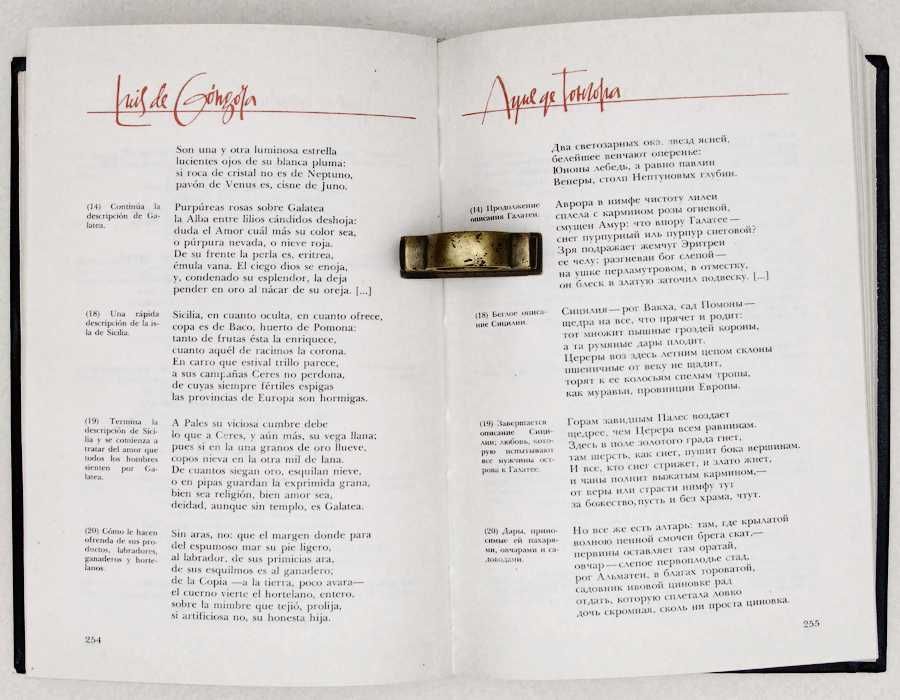 Luis de Góngora
Son una y otra luminosa estrella
lucientes ojos de su blanca pluma:
si roca de cristal no es de Neptuno,
pavón de Venus es, cisne de Juno.
(14) Continúa la
descripción de Ga-
latea.
Purpúreas rosas sobre Galatea
la Alba entre lilios cándidos deshoja:
duda el Amor cuál más su color sea,
o púrpura nevada, o nieve roja.
De su frente la perla es, eritrea,
émula vana. El ciego dios se enoja,
y, condenado su esplendor, la deja
pender en oro al nácar de su oreja. [...]
(18) Una rápida
descripción de la is-
la de Sicilia.
Sicilia, en cuanto oculta, en cuanto ofrece,
copa es de Baco, huerto de Pomona:
tanto de frutas ésta la enriquece,
cuanto aquél de racimos la corona.
En carro que estival trillo parece,
a sus campañas Ceres no perdona,
de cuyas siempre fértiles espigas
las provincias de Europa son hormigas.
(19) Termina la
descripción de Sici-
lia y se comienza a
tratar del amor que
todos los hombres
sienten por Ga-
latea.
A Pales su viciosa cumbre debe
lo que a Ceres, y aún más, su vega llana;
pues si en la una granos de oro llueve,
copos nieva en la otra mil de lana.
De cuantos siegan oro, esquilan nieve,
o en pipas guardan la exprimida grana,
bien sea religión, bien amor sea,
deidad, aunque sin templo, es Galatea.
(20) Cómo le hacen
ofrenda de sus pro-
ductos, labradores,
ganaderos y horte-
lanos.
Sin aras, no: que el margen donde para
del espumoso mar su pie ligero,
al labrador, de sus primicias ara,
de sus esquilmos es al ganadero;
de la Copia —a la tierra, poco avara—
el cuerno vierte el hortelano, entero,
sobre la mimbre que tejió, prolija,
si artificiosa no, su honesta hija.
254
Луис де Гонгора
Два светозарных ока, звезд ясней,
белейшее венчают оперенье:
Юноны лебедь, а равно павлин
Венеры, столп Нептуновых глубин.
(14) Продолжение
описания Галатеи.
Аврора в нимфе чистоту лилеи
сплела с кармином розы огневой,
смущен Амур: что впору Галатее —
снег пурпурный иль пурпур снеговой?
Зря подражает жемчуг Эритреи
ее челу: разгневан бог слепой —
на ушке перламутровом, в отместку,
он блеск в златую заточил подвеску. [...]
(18) Беглое описа-
ние Сицилии.
Сицилия — рог Вакха, сад Помоны —
щедра на все, что прячет и родит:
тот множит пышные гроздей короны,
а та румяные дары плодит.
Цереры воз здесь летним цепом склоны
пшеничные от веку не щадит,
торят к ее колосьям спелым тропы,
как муравьи, провинции Европы.
(19) Завершается
описание Сици-
лии; любовь, кото-
рую испытывают
все мужчины ост-
рова к Галатее.
Горам завидным Палес воздает
щедрее, чем Церера всем равнинам.
Здесь в поле золотого града гнет,
там шерсть, как снег, пушит бока вершинам.
И все, кто снег стрижет, и злато жнет,
и чаны полнит выжатым кармином,—
от веры или страсти нимфу тут
за божество, пусть и без храма, чтут.
(20) Дары, прино-
симые ей пахаря-
ми, овчарами и са-
доводами.
Но все же есть алтарь: там, где крылатой
волною пенной смочен брега скат,—
первины оставляет там оратай,
овчар — слепое первоплодье стад,
рог Альматеи, в благах тороватой,
садовник ивовой циновке рад
отдать, которую сплетала ловко
дочь скромная, сколь ни проста циновка.
255